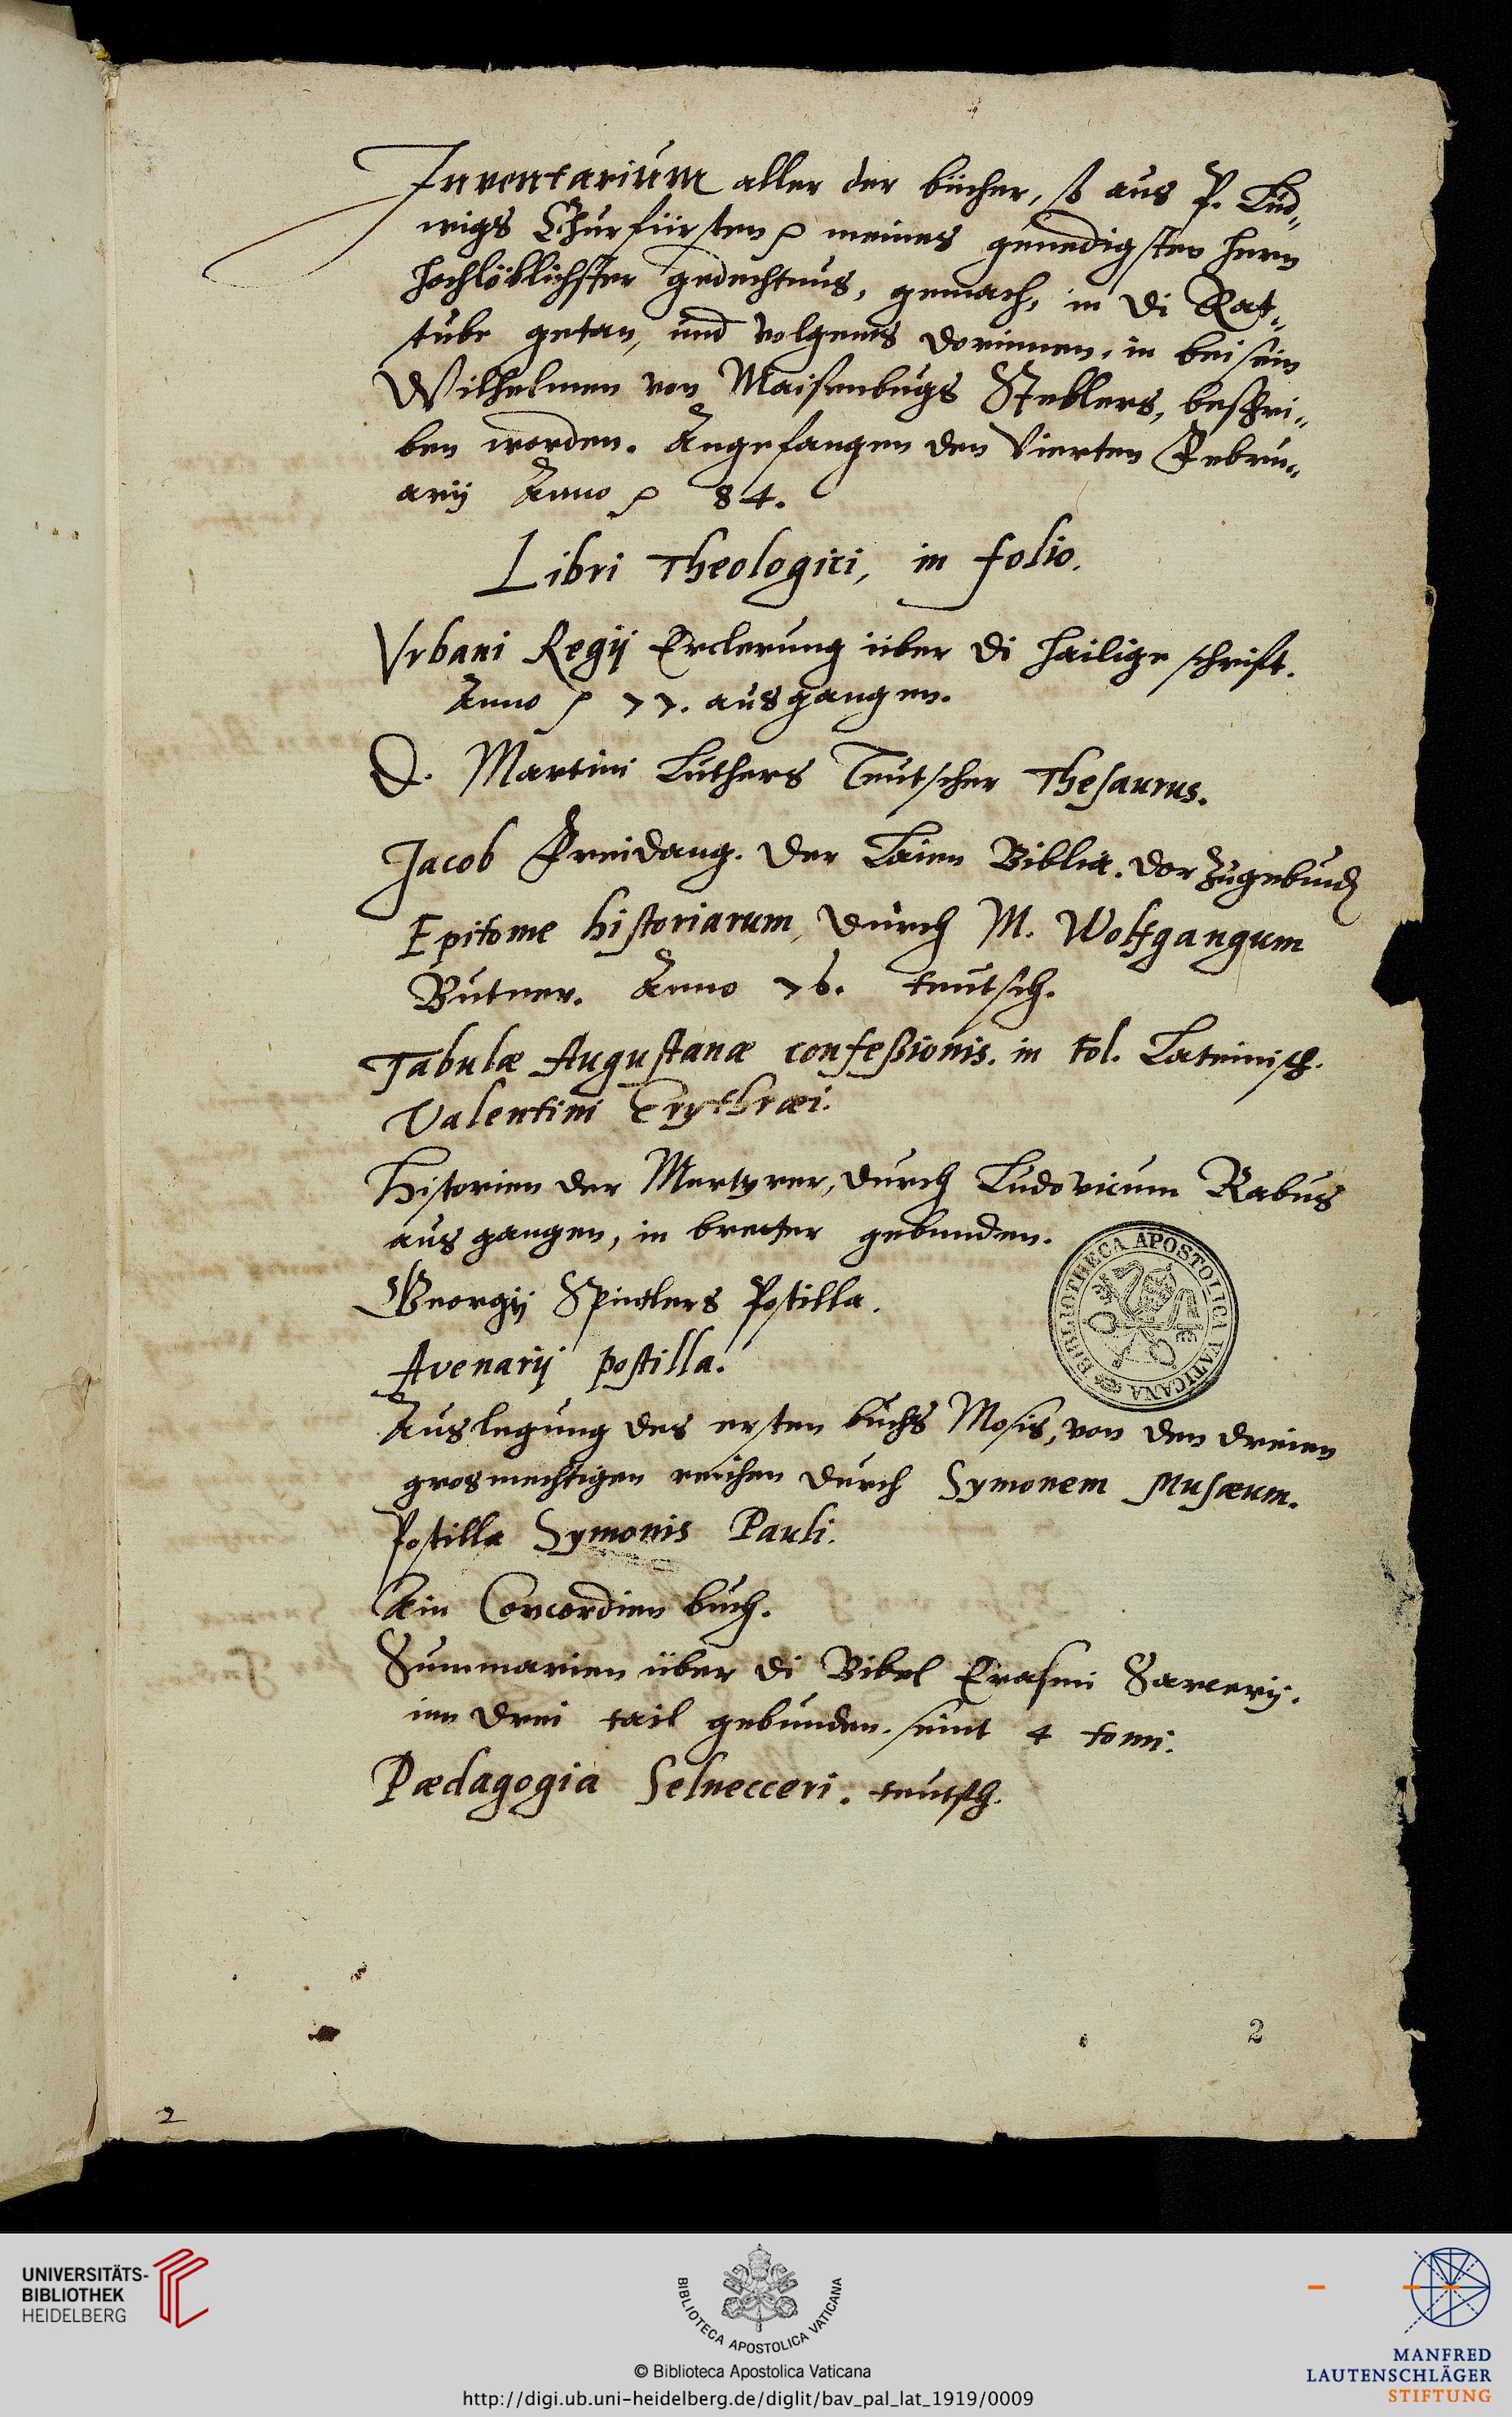 Inventarium aller der bücher, so aus P. Lud-
wigs Churfürsten ꝛc meines genedigsten hern
hochlöblichster gedechtnus, gemach, in di Rat-
stube getan, und volgents dorinnen, in beisein
Wilhelmen von Maisenbugs Steblers, beschri-
ben worden. Angefangen den Vierten Febru-
arij Anno ꝛc 84.
Libri Theologici, in folio.
Vrbani Regij Erclerung über di hailige schrift.
Anno ꝛc 77. ausgangen.
D. Martini Luthers Teutscher Thesaurus.
Jacob Freidang. der Laien Biblia. dor zugebunden
Epitome historiarum, durch M. Wolfgangum
Butner. Anno 76. teutsch.
Tabulæ Augustanæ confeßionis. in fol. Lateinisch.
Valentini Erythræi.
Historien der Martyrer, durch Ludovicum Rabus
ausgangen, in breter gebunden.
Georgij Spindlers Postilla.
Avenarij postilla.
Auslegung des ersten buchs Mosis, von den dreien
grosmechtigen reichen durch Symonem Musæum.
Postilla Symonis Pauli.
Ain Concordien buch.
Summarien über di Bibel Erasmi Sarcerij.
inn drei tail gebunden. seint 4 tomi.
Pædagogia Selnecceri. teutsch.
BIBLIOTHECA APOSTOLICA VATICANA
2
2
UNIVERSITÄTS-
BIBLIOTHEK
HEIDELBERG
BIBLIOTECA APOSTOLICA VATICANA
© Biblioteca Apostolica Vaticana
http://digi.ub.uni-heidelberg.de/diglit/bav_pal_lat_1919/0009
MANFRED
LAUTENSCHLÄGER
STIFTUNG